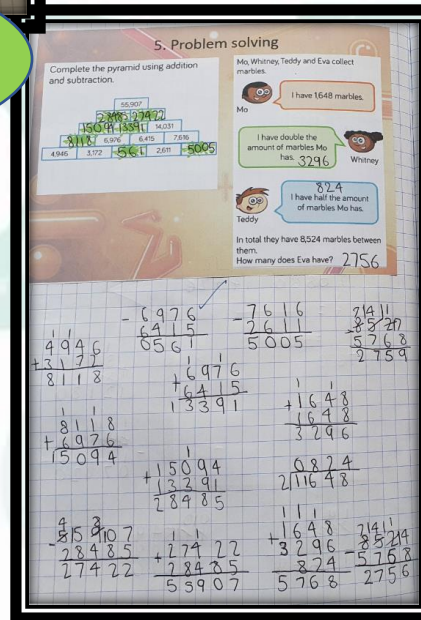 5. Problem solving
Complete the pyramid using addition
and subtraction.
55,907
28485 27422
15094 13391 14,031
8118 6,976 6,415 7,616
4,946 3,172 561 2,611 5005
Mo, Whitney, Teddy and Eva collect
marbles.
I have 1,648 marbles.
Mo
I have double the
amount of marbles Mo
has. 3296
Whitney
824
I have half the amount
of marbles Mo has.
Teddy
In total they have 8,524 marbles between
them.
How many does Eva have? 2756
1 1
4946
+3172
8118
- 6976
6415
0561
- 7616
2611
5005
5768
2759
1 1
+ 6976
6415
13391
1 1
8118
+ 6976
15094
1 1
+ 1648
1648
3296
1
+ 15094
13391
28485
0824
2 11648
28485
27422
1 1
+ 27422
28485
55907
1 1 1
+ 1648
3296
824
5768
- 5768
2756